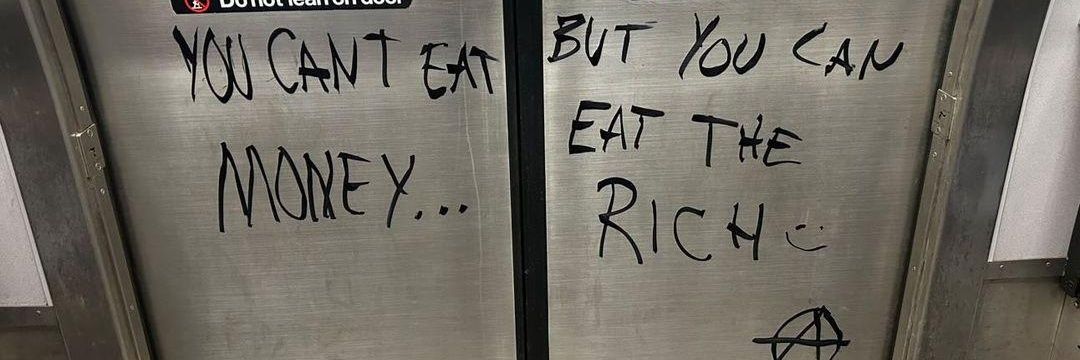 Do not lean on door
YOU CAN'T EAT
MONEY...
BUT YOU CAN
EAT THE
RICH :)